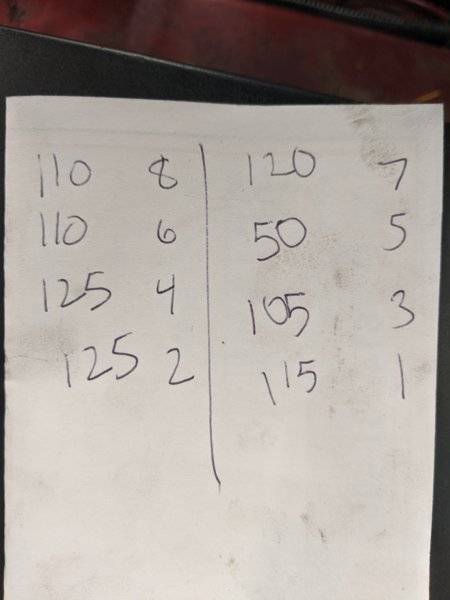 110 8 120 7
110 6 50 5
125 4 105 3
125 2 115 1